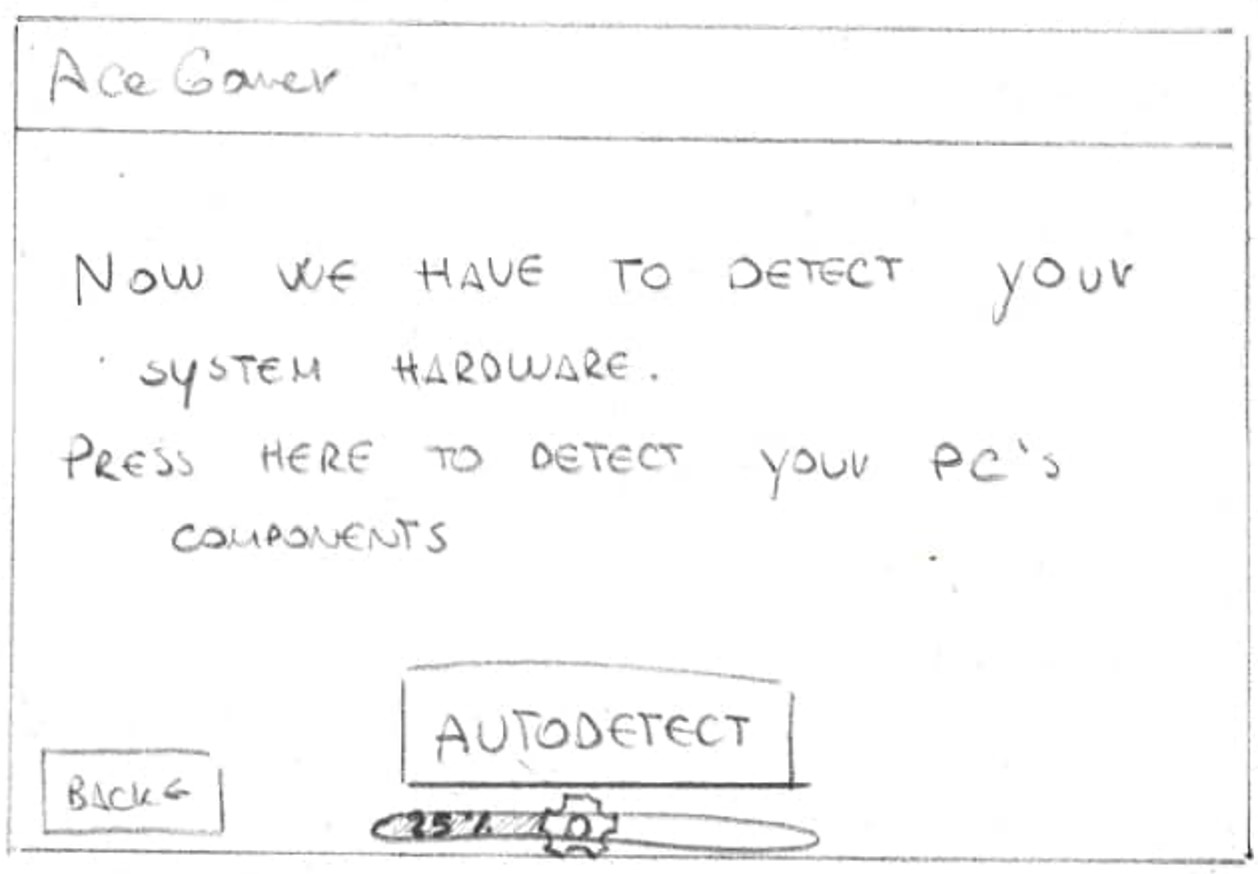 Ace Gamer
NOW WE HAVE TO DETECT your
SYSTEM HARDWARE.
PRESS HERE TO DETECT your PC's
COMPONENTS
AUTODETECT
BACK ←
25%